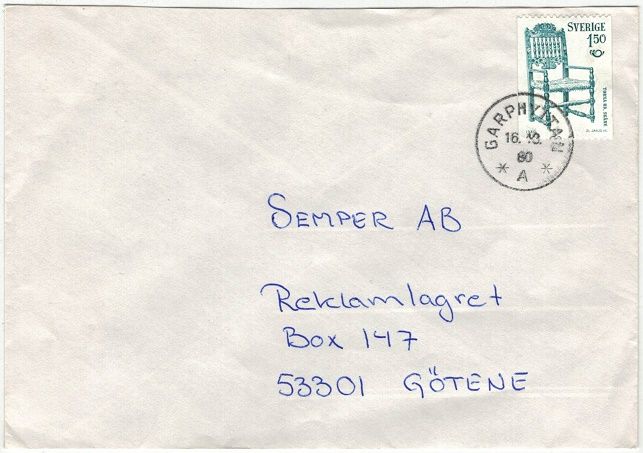 SVERIGE
1.50
GARPHYTTAN
80
* A *
SEMPER AB
Reklamlagret
Box 147
53301 GÖTENE